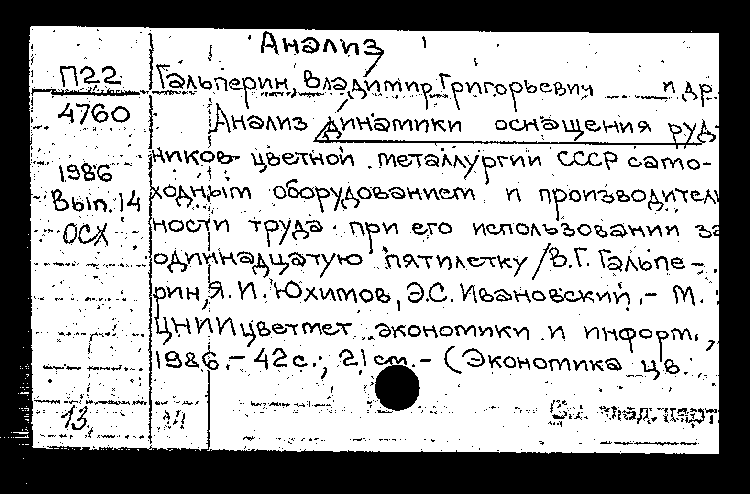 Анализ
П22
Гальперин, Владимир Григорьевич и др
4760
Анализ динамики оснащения руд-
ников цветной металлургии СССР само-
1986
Вып. 14
ходным оборудованием и производитель
ОСХ
ности труда при его использовании за
одиннадцатую пятилетку / В.Г. Гальпе-
рин, Я.И. Юхимов, Э.С. Ивановский. - М. :
ЦНИИцветмет экономики и информ.,
1986. - 42 с.; 21 см. - (Экономика цв.
13
См. след. карт